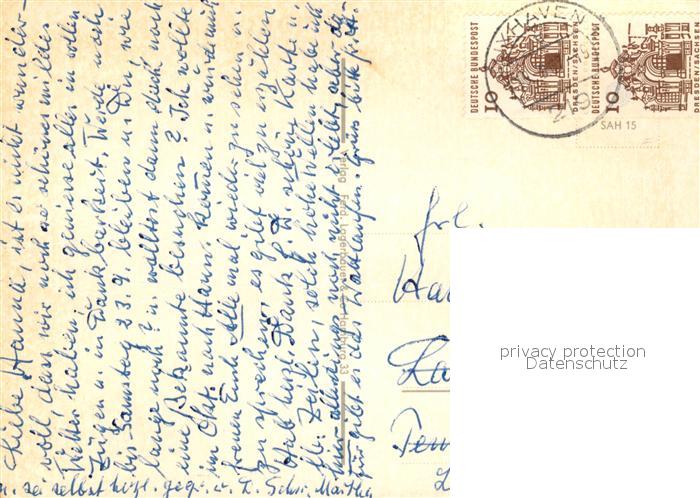 Liebe Hanni, ist es nicht wunder-
voll, dass wir noch so schönes mildes
Wetter haben, ich geniesse alles in vollen
Zügen u. in Dankbarkeit. Werde noch
bis Samstag 23. 9. bleiben u. Du wie
lange noch? u. wolltest dann doch noch
eine Bekannte besuchen? Ich wollte
im Okt. nach Hann. kommen u. würde mich
freuen Euch Alle mal wieder zu sehen u.
zu sprechen, es gibt viel zu erzählen
Hab herzl. Dank f. D. schöne Karte u.
lb. Zeilen, solch hohe Wellen habe ich
hier allerdings noch nicht erlebt, aber da-
für gibt es das Wattlaufen. Grüss bitte
u. sei selbst herzl. gegr. v. D. Schw. Martha
Verlag Ferd. Lagerbauer & Co. Hamburg 33
DEUTSCHE BUNDESPOST
10
DRESDEN/SACHSEN
DEUTSCHE BUNDESPOST
10
DRESDEN/SACHSEN
HAVEN
SAH 15
Frl.
privacy protection
Datenschutz